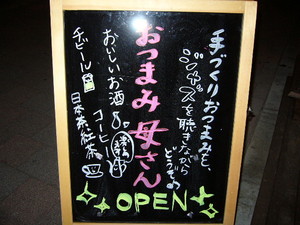 手づくりおつまみを、
ジャズを聴きながら
どうぞ♪
おつまみ母さん
おいしいお酒
コーヒー
チビール
日本茶・紅茶
OPEN